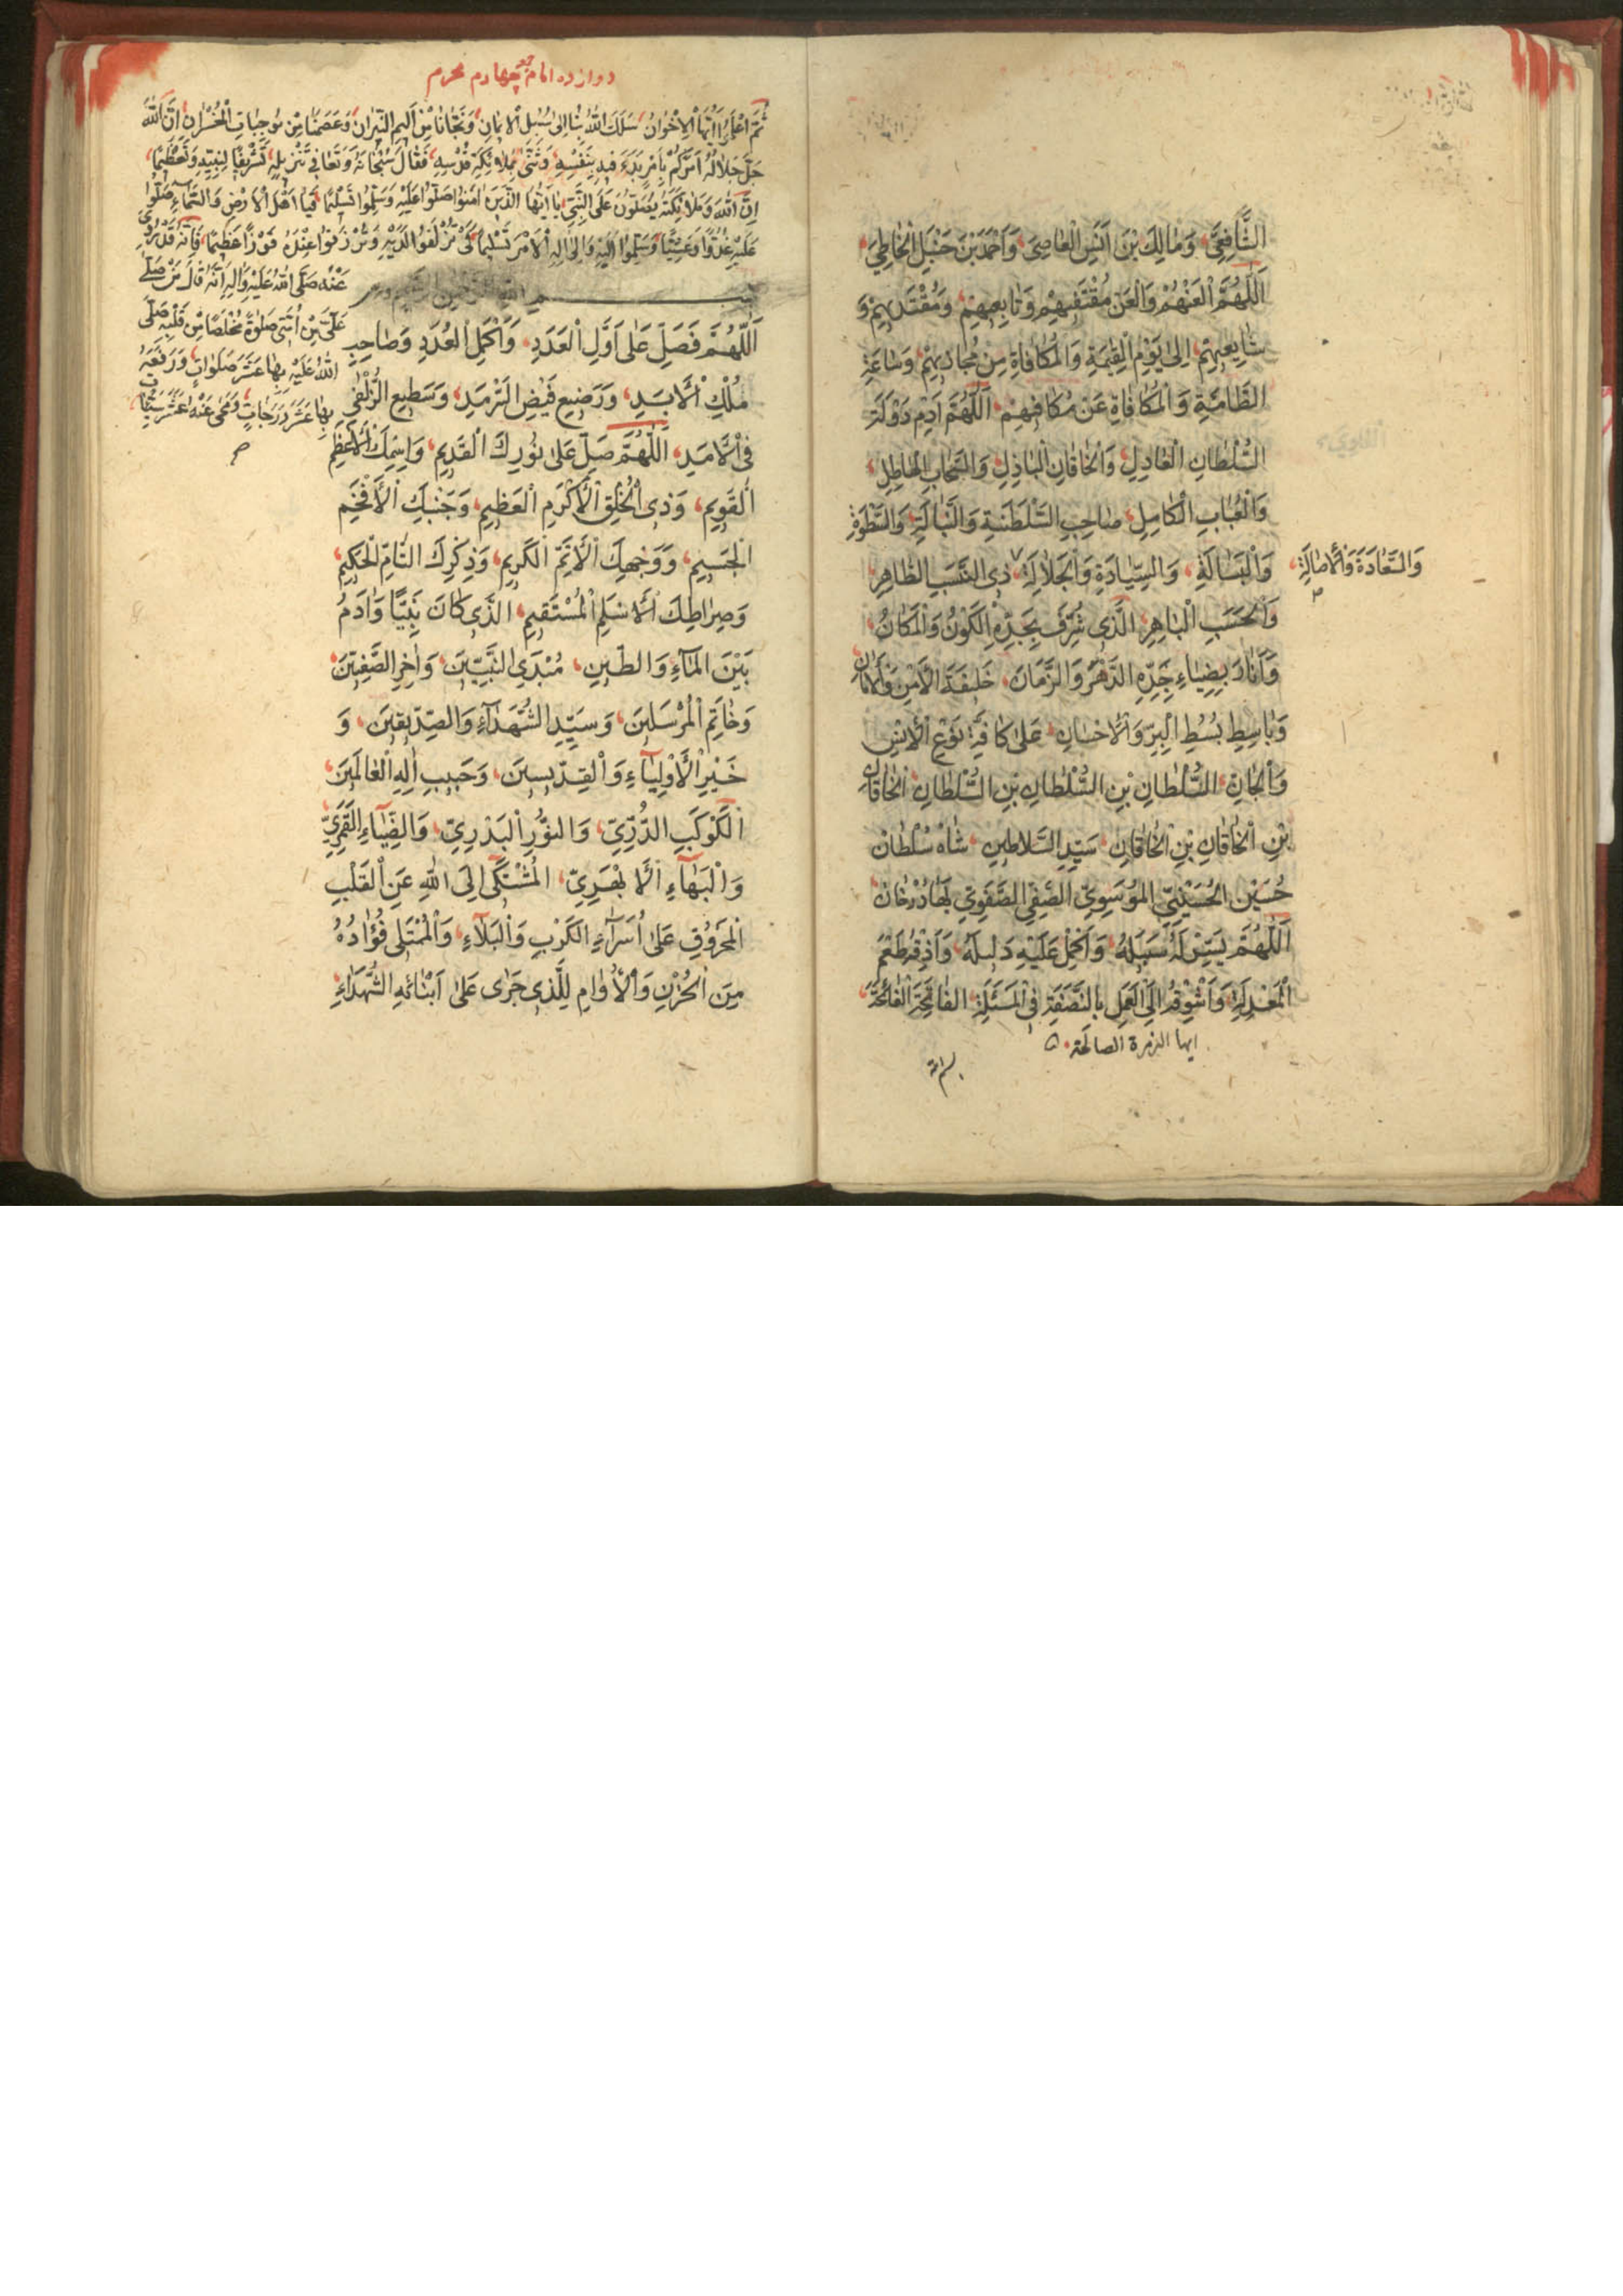 الشَّافِعِيَّ، وَمَالِكَ بْنَ اَنَسِ الْعَاصِيَ، وَاَحْمَدَ بْنَ حَنْبَلِ الْخَاطِيَ،
اَللّٰهُمَّ الْعَنْهُمْ وَالْعَنْ مُقْتَفِيهِمْ وَتَابِعِيهِمْ، وَمُقْتَدِيهِمْ وَ
شَايِعِيهِمْ، اِلىٰ يَوْمِ الْقِيٰمَةِ وَالْمُكَافَاةِ مِنْ مُجَازِيهِمْ، وَسَاعَةِ
الطَّامَّةِ وَالْمُكَافَاةِ عَنْ مُكَافِيهِمْ، اَللّٰهُمَّ اَدِمْ دَوْلَةَ
السُّلْطَانِ الْعَادِلِ، وَالْخَاقَانِ الْبَاذِلِ، وَالسَّحَابِ الْهَاطِلِ،
وَالْعُبَابِ الْكَامِلِ، صَاحِبِ السَّلْطَنَةِ وَالنَّبَالَةِ، وَالسَّطْوَةِ
وَالْبَسَالَةِ، وَالسِّيَادَةِ وَالْجَلَالَةِ، ذِي النَّسَبِ الطَّاهِرِ،
وَالسَّعَادَةِ وَالْاَصَالَةِ،
وَالْحَسَبِ الْبَاهِرِ، الَّذِي شُرِّفَ بِجَدِّهِ الْكَوْنُ وَالْمَكَانُ،
وَاَنَارَ بِضِيَاءِ جَدِّهِ الدَّهْرُ وَالزَّمَانَ، خَلِيفَةَ الْاَمْنِ وَالْاَمَانِ
وَبَاسِطِ بُسُطِ الْبِرِّ وَالْاِحْسَانِ، عَلىٰ كَافَّةِ نَوْعِ الْاِنْسِ
وَالْجَانِّ، السُّلْطَانِ بْنِ السُّلْطَانِ بْنِ السُّلْطَانِ، الْخَاقَانِ
بْنِ الْخَاقَانِ بْنِ الْخَاقَانِ، سَيِّدِ السَّلَاطِينِ، شَاهْ سُلْطَانْ
حُسَيْنِ الْحُسَيْنِيِّ الْمُوسَوِيِّ الصَّفِيِّ الصَّفَوِيِّ بَهَادُرْخَانْ،
اَللّٰهُمَّ يَسِّرْ لَهُ سَبِيلَهُ، وَاَكْمِلْ عَلَيْهِ دَلِيلَهُ، وَاَذِقْهُ طَعْمَ
الْمَعْدِلَةِ، وَاَشْوِقْهُ اِلَى الْعَمَلِ بِالنَّصَفَةِ فِي الْمَسْئَلَةِ، الْفَاتِحَةَ الْفَاتِحَةَ،
ايها الزمرة الصالحة
بسم الله
دوازده امام جمعه چهاردم محرم
ثُمَّ اعْلَمُوا اَيُّهَا الْاِخْوَانُ، سَلَكَ اللّٰهُ بِنَا اِلىٰ سُبُلِ الْاِيمَانِ، وَنَجَّانَا مِنْ اَلِيمِ النِّيرَانِ، وَعَصَمَنَا مِنْ مُوجِبَاتِ الْخُسْرَانِ، اِنَّ اللّٰهَ
جَلَّ جَلَالُهُ اَمَرَكُمْ بِاَمْرٍ بَدَءَ فِيهِ بِنَفْسِهِ، وَثَنّٰى بِمَلَائِكَةِ قُدْسِهِ، فَقَالَ سُبْحَانَهُ وَتَعَالىٰ فِي تَنْزِيلِهِ، تَشْرِيفًا لِنَبِيِّهِ وَتَعْظِيمًا،
اِنَّ اللّٰهَ وَمَلَائِكَتَهُ يُصَلُّونَ عَلَى النَّبِيِّ، يَا اَيُّهَا الَّذِينَ اٰمَنُوا صَلُّوا عَلَيْهِ وَسَلِّمُوا تَسْلِيمًا، فَيَا اَهْلَ الْاَرْضِ وَالسَّمَاءِ، صَلُّوا
عَلَيْهِ غُدُوًّا وَعَشِيًّا، وَسَلِّمُوا اِلَيْهِ وَاِلىٰ اٰلِهِ الْاَمْرَ تَسْلِيمًا، كَيْ تُزْلَفُوا لَدَيْهِ وَتُرْزَقُوا عِنْدَهُ فَوْزًا عَظِيمًا، فَاِنَّهُ قَدْ رُوِيَ
عَنْهُ صَلَّى اللّٰهُ عَلَيْهِ وَاٰلِهِ اَنَّهُ قَالَ مَنْ صَلّٰى
عَلَيَّ مِنْ اُمَّتِي صَلٰوةً مُخْلَصًا مِنْ قَلْبِهِ، صَلَّى
اللّٰهُ عَلَيْهِ بِهَا عَشَرَ صَلَوَاتٍ، وَرَفَعَهُ
بِهَا عَشَرَ دَرَجَاتٍ، وَمَحىٰ عَنْهُ عَشَرَ سَيِّئَاتٍ،
اَللّٰهُمَّ فَصَلِّ عَلىٰ اَوَّلِ الْعَدَدِ، وَاَكْمَلِ الْعُدَدِ وَصَاحِبِ
مُلْكِ الْاَبَدِ، وَرَضِيعِ فَيْضِ السَّرْمَدِ، وَسَطِيعِ الزُّلْفىٰ
فِي الْاَمَدِ، اَللّٰهُمَّ صَلِّ عَلىٰ نُورِكَ الْقَدِيمِ، وَاِسْمِكَ الْاَعْظَمِ
الْقَوِيمِ، وَذِي الْخُلُقِ الْاَكْرَمِ الْعَظِيمِ، وَجَنْبِكَ الْاَفْخَمِ
الْجَسِيمِ، وَوَجْهِكَ الْاَتَمِّ الْكَرِيمِ، وَذِكْرِكَ التَّامِّ الْحَكِيمِ،
وَصِرَاطِكَ الْاَسْلَمِ الْمُسْتَقِيمِ، الَّذِي كَانَ نَبِيًّا وَاٰدَمُ
بَيْنَ الْمَاءِ وَالطِّينِ، مُبْدَى النَّبِيِّينَ، وَاٰخِرِ الصَّفِيِّينَ،
وَخَاتِمِ الْمُرْسَلِينَ، وَسَيِّدِ الشُّهَدَاءِ وَالصِّدِّيقِينَ، وَ
خَيْرِ الْاَوْلِيَاءِ وَالْقِدِّيسِينَ، وَحَبِيبِ اِلٰهِ الْعَالَمِينَ،
الْكَوْكَبِ الدُّرِّيِّ، وَالنُّورِ الْبَدْرِيِّ، وَالضِّيَاءِ الْقَمَرِيِّ،
وَالْبَهَاءِ الْاَبْهَرِيِّ، الْمُشْتَكىٰ اِلَى اللّٰهِ عَنِ الْقَلْبِ
الْمَحْرُوقِ عَلىٰ اُسَرَاءِ الْكَرْبِ وَالْبَلَاءِ، وَالْمُمْتَلِي فُؤَادُهُ
مِنَ الْحُزْنِ وَالْاُوَامِ لِلَّذِي جَرىٰ عَلىٰ اَبْنَائِهِ الشُّهَدَاءِ